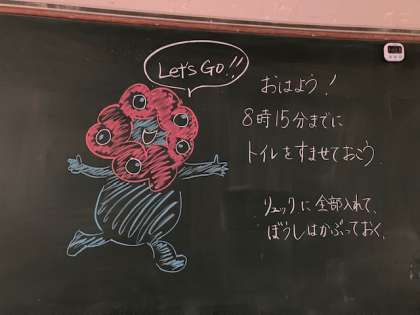 Let's Go!!
おはよう!
8時15分までに
トイレをすませておこう.
リュックに全部入れて、
ぼうしはかぶっておく.